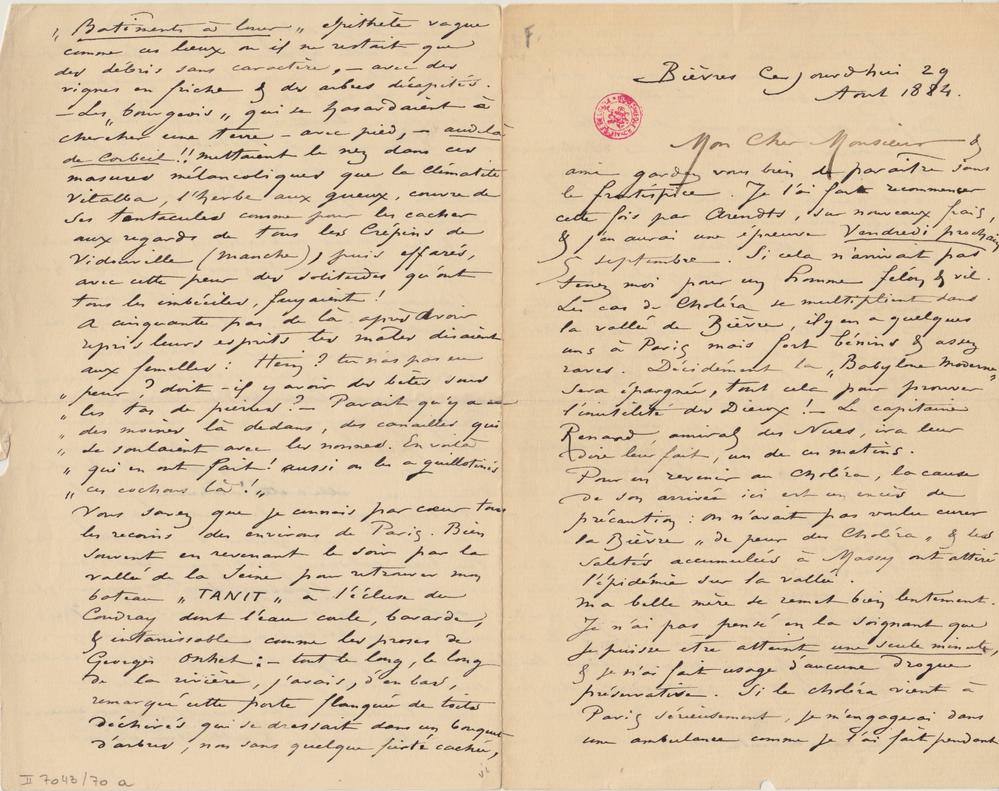 Bièvres Ce jourd'hui 29
Aout 1884.
Mon Cher Monsieur &
ami gardez vous bien de paraître sans
le frontispice. Je l'ai fait recommencer
cette fois par Arendts, sur nouveaux frais,
& j'en aurai une épreuve Vendredi prochain
5 septembre. Si cela n'arrivait pas
tenez moi pour un homme félon & vil.
Les cas de Choléra se multiplient dans
la vallée de Bièvre, il y en a quelques
uns à Paris mais fort bénins & assez
rares. Décidément la „Babylone moderne"
sera épargnée, tout cela pour prouver
l'inutilité des Dieux ! — Le capitaine
Renard, amiral des Nues, ira leur
dire leur fait, un de ces matins.
Pour en revenir au Choléra, la cause
de son arrivée ici est un excès de
précaution : on n'avait pas voulu curer
la Bièvre „de peur des Choléra" & les
saletés accumulées à Massy ont attiré
l'épidémie sur la vallée.
Ma belle mère se remet bien lentement.
Je n'ai pas pensé en la soignant que
je puisse etre atteint une seule minute,
& je n'ai fait usage d'aucune drogue
préservative. Si le choléra vient à
Paris sérieusement, je m'engagerai dans
une ambulance comme je l'ai fait pendant
„Batîments à louer„ épithète vague
comme ces lieux où il ne restait que
des débris sans caractère, — avec des
vignes en friche & des arbres décapités.
— Les „bourgeois„ qui se hasardaient à
chercher une terre — avec pied, — audelà
de Corbeil !! mettaient le nez dans ces
masures mélancoliques que la Clématite
Vitalba, l'herbe aux gueux, couvre de
ses tentacules comme pour les cacher
aux regards de tous les Crépins de
Vidouville (manche), puis effarés,
avec cette peur des solitudes qu'ont
tous les imbéciles, fuyaient !
A cinquante pas de là après avoir
repris leurs esprits les mâles disaient
aux femelles : Hein ? tu n'as pas eu
„ peur ? doit-il y avoir des bêtes sous
„ les tas de pierres ? — Parait qu'y a eu
„ des moines là dedans, des canailles qui
„ se soulaient avec les nonnes. En voilà
„ qui en ont fait ! aussi on les a guillotinés
„ ces cochons là ! „
Vous savez que je connais par cœur tous
les recoins des environs de Paris. Bien
souvent en revenant le soir par la
vallée de la Seine pour retrouver mon
bateau „TANIT„ à l'écluse du
Coudray dont l'eau coule, bavarde,
& intarissable comme les proses de
Georges Ohnet : — tout le long, le long
de la rivière, j'avais, d'en bas,
remarqué cette porte flanquée de toits
déchirés qui se dressait dans un bouquet
d'arbres, non sans quelque fierté cachée,
II 7043/70 a